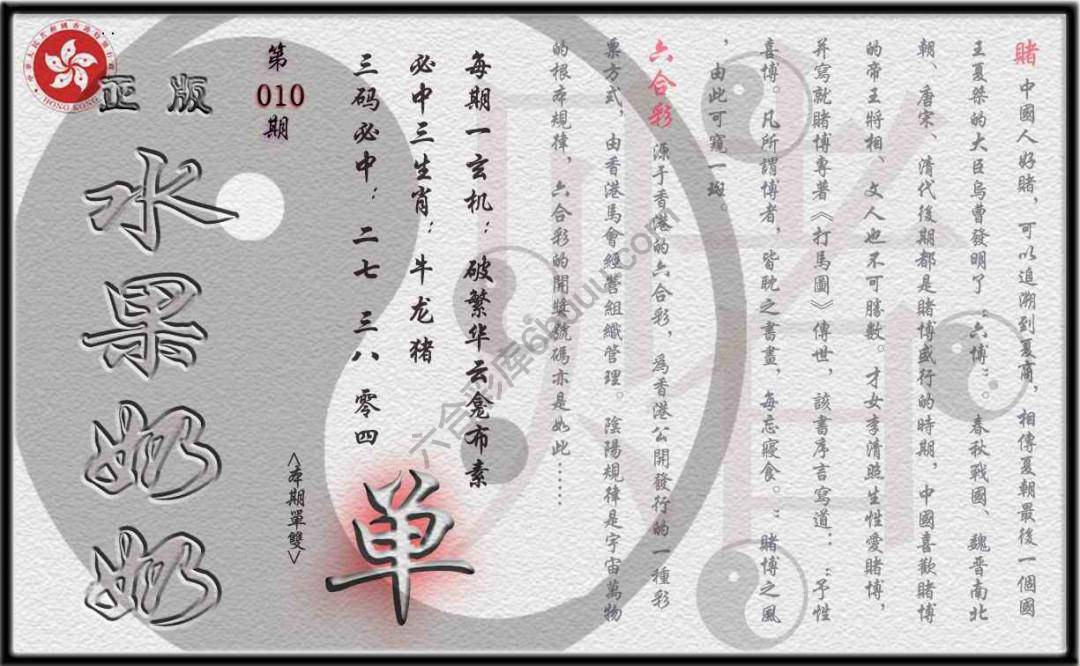 賭 中國人好賭，可以追溯到夏商，相傳夏朝最後一個國
王夏桀的大臣烏曹發明了“六博”。春秋戰國、魏晉南北
朝、唐宋、清代後期都是賭博盛行的時期，中國喜歡賭博
的帝王將相、文人也不可勝數。才女李清照生性愛賭博，
并寫就賭博專著《打馬圖》傳世，該書序言寫道：“予性
喜博。凡所謂博者，皆耽之書畫，每忘寢食。”賭博之風
，由此可窺一斑。
六合彩 源于香港的六合彩，爲香港公開發行的一種彩
票方式，由香港馬會經營組織管理。陰陽規律是宇宙萬物
的根本規律，六合彩的開獎號碼亦是如此……
每期一玄机：破繁华云龛布素
必中三生肖：牛龙猪
三码必中：二七 三八 零四
第
010
期
<本期單雙>
单
正版
水果奶奶
HONG KONG
六合彩库6buuu.com